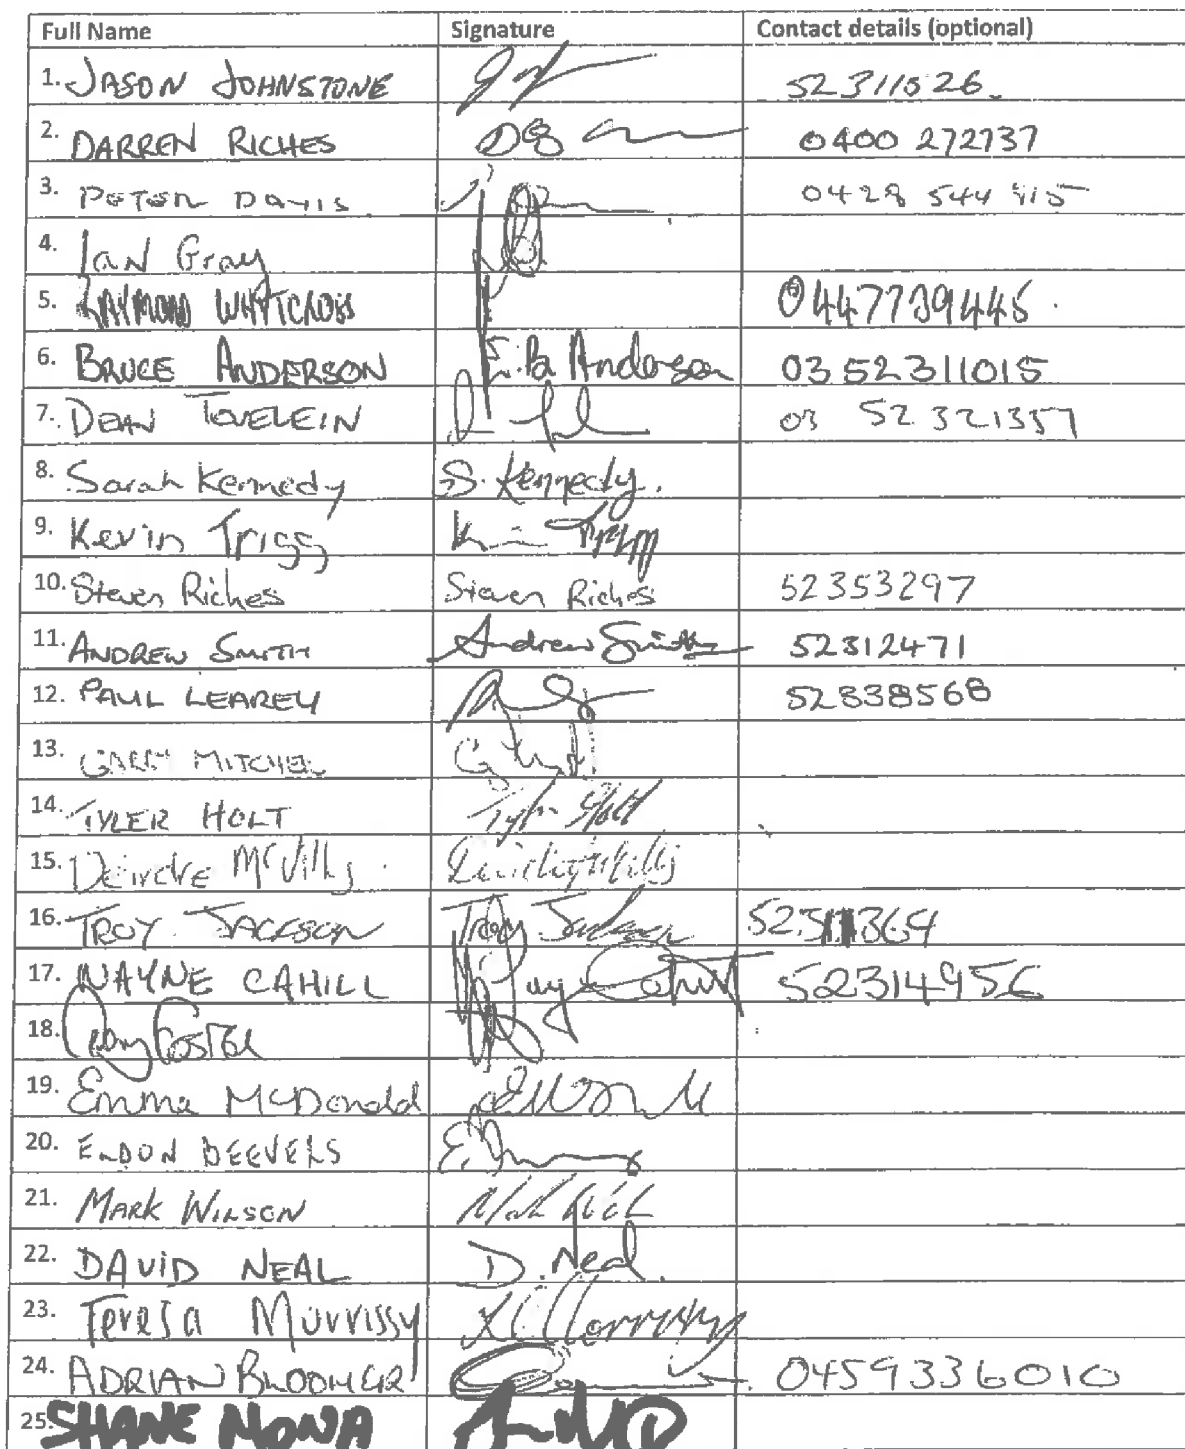 Full Name Signature Contact details (optional)
1. JASON JOHNSTONE 52311526
2. DARREN RICHES 0400 272737
3. PETER DAVIS 0428 544
4. Ian Gray
5. RAYMOND WHYTCROSS 0447739445
6. BRUCE ANDERSON E.B Anderson 03 52311015
7. DEAN TOVELEIN 03 52 321357
8. Sarah Kennedy S. Kennedy.
9. Kevin Trigg
10. Steven Riches Steven Riches 52353297
11. ANDREW SMITH Andrew Smith 52312471
12. PAUL LEAREY 52338568
13. GARRY MITCHEL
14. TYLER HOLT Tyler Holt
15. Deirdre McVilly
16. TROY JACKSON Troy Jackson
17. WAYNE CAHILL 52314956
18.
19. Emma McDonald
20. ELDON DEEVERS
21. MARK WILSON
22. DAVID NEAL D. Neal
23. Teresa Morrissy
24. ADRIAN BLOOMER 0459336010
25. SHANE NONA